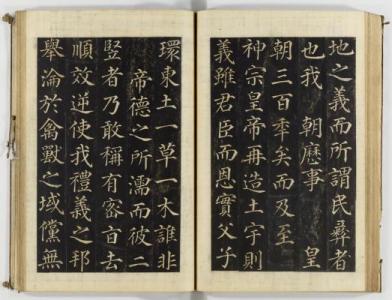 地之義而所謂民彝者
也我　朝歷事　皇
朝三百年矣而及至
神宗皇帝再造土宇則
義雖君臣而恩實父子
環東土一草一木誰非
帝德之所濡而彼二
竪者乃敢稱有密旨去
順效逆使我禮義之邦
擧淪於禽獸之域儻無